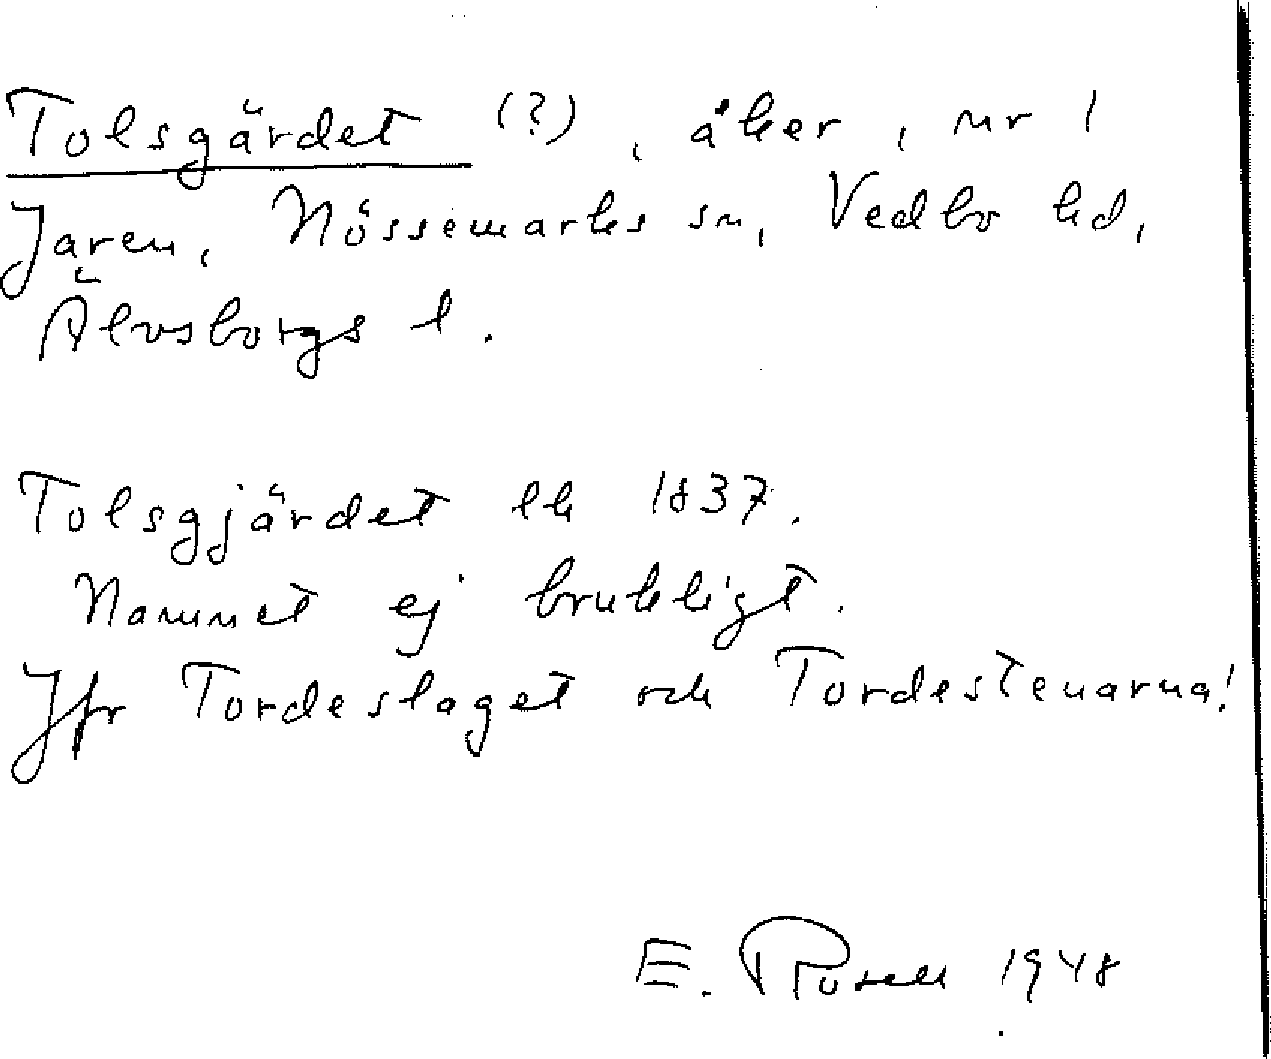 Tolsgärdet (?), åker, nr 1
Jaren, Nössemarks sn, Vedbo hd,
Älvsborgs l.
Tolsgjärdet lh 1837.
Namnet ej brukligt.
Jfr Tordeslaget och Tordestenarna!
E. Rosell 1948